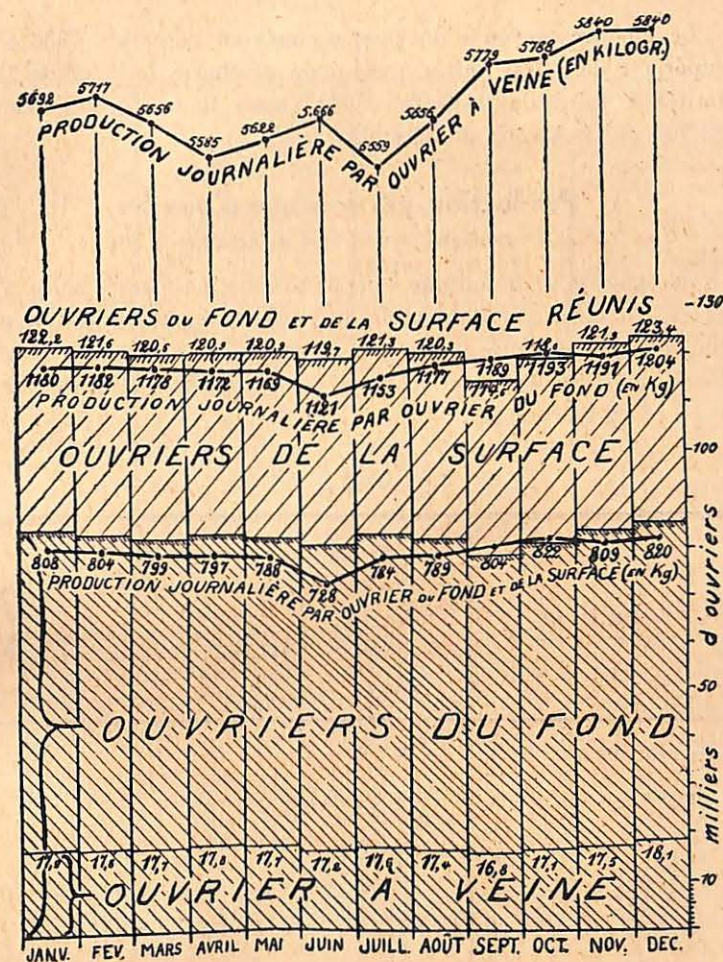 5692 5717 5656 5585 5622 5.666 5559 5656 5779 5788 5840 5840
PRODUCTION JOURNALIÈRE PAR OUVRIER À VEINE (EN KILOGR.)
OUVRIERS DU FOND ET DE LA SURFACE RÉUNIS
130
122,2 121,6 120,5 120,9 120,9 119,7 121,3 120,9 118,0 121,9 123,4
1180 1182 1178 1172 1169 1121 1153 1177 1189 1193 1191 1204
PRODUCTION JOURNALIÈRE PAR OUVRIER DU FOND (EN Kg)
OUVRIERS DE LA SURFACE
100
808 804 799 797 788 728 784 789 804 822 809 820
PRODUCTION JOURNALIÈRE PAR OUVRIER DU FOND ET DE LA SURFACE (EN Kg)
50
OUVRIERS DU FOND
milliers d'ouvriers
17,6 17,7 17,8 17,7 17,2 17,4 16,8 17,1 17,5 18,1
10
OUVRIER A VEINE
JANV. FEV. MARS AVRIL MAI JUIN JUILL. AOÛT SEPT. OCT. NOV. DEC.